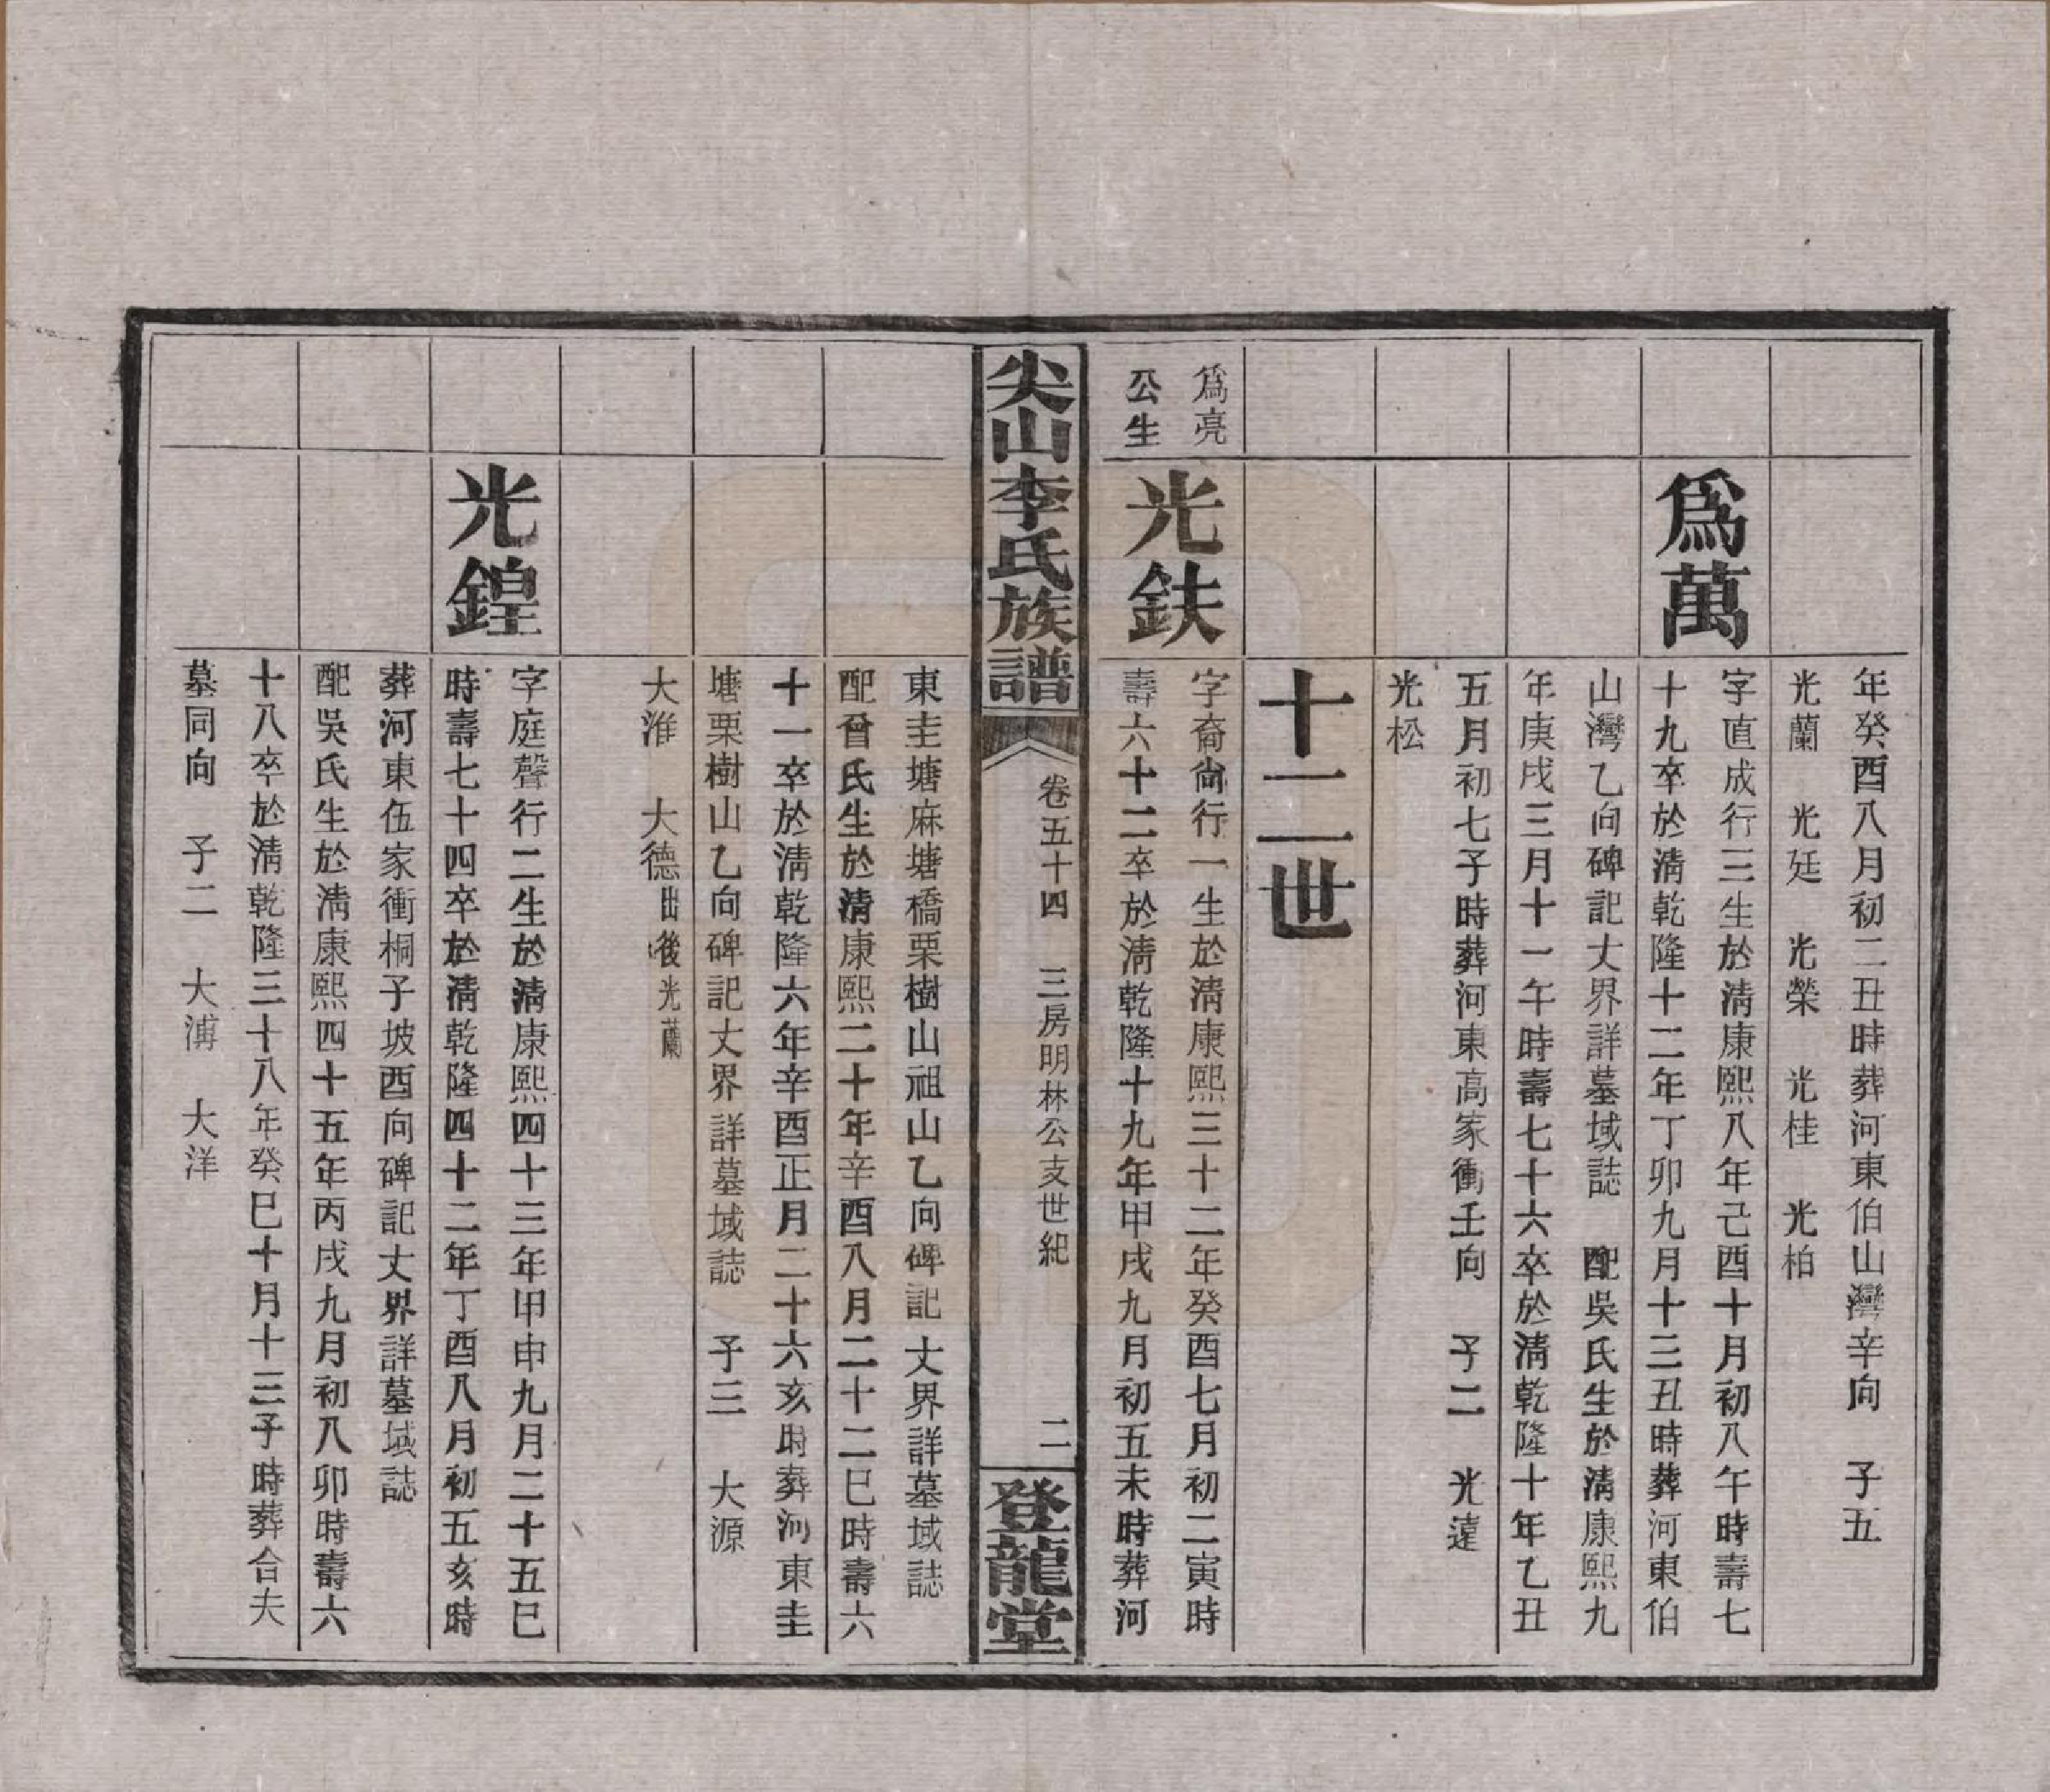 年癸酉八月初二丑時葬河東伯山灣辛向　子五
光蘭　光廷　光榮　光桂　光柏
爲萬
字直成行三生於淸康熙八年己酉十月初八午時壽七
十九卒於淸乾隆十二年丁卯九月十三丑時葬河東伯
山灣乙向碑記丈界詳墓域誌　配吳氏生於淸康熙九
年庚戌三月十一午時壽七十六卒於淸乾隆十年乙丑
五月初七子時葬河東高家衝壬向　子二　光遠
光松
十二世
爲亮
公生
光鈇
字裔尙行一生於淸康熙三十二年癸酉七月初二寅時
壽六十二卒於淸乾隆十九年甲戌九月初五未時葬河
尖山李氏族譜
卷五十四　三房明林公支世紀
二
登龍堂
東圭塘麻塘橋栗樹山祖山乙向碑記丈界詳墓域誌
配曾氏生於清康熙二十年辛酉八月二十二巳時壽六
十一卒於淸乾隆六年辛酉正月二十六亥時葬河東圭
塘栗樹山乙向碑記丈界詳墓域誌　子三　大源
大淮　大德出後光蘭
光鍠
字庭聲行二生於淸康熙四十三年甲申九月二十五巳
時壽七十四卒於淸乾隆四十二年丁酉八月初五亥時
葬河東伍家衝桐子坡酉向碑記丈界詳墓域誌
配吳氏生於淸康熙四十五年丙戌九月初八卯時壽六
十八卒於淸乾隆三十八年癸巳十月十三子時葬合夫
墓同向　子二　大溥　大洋